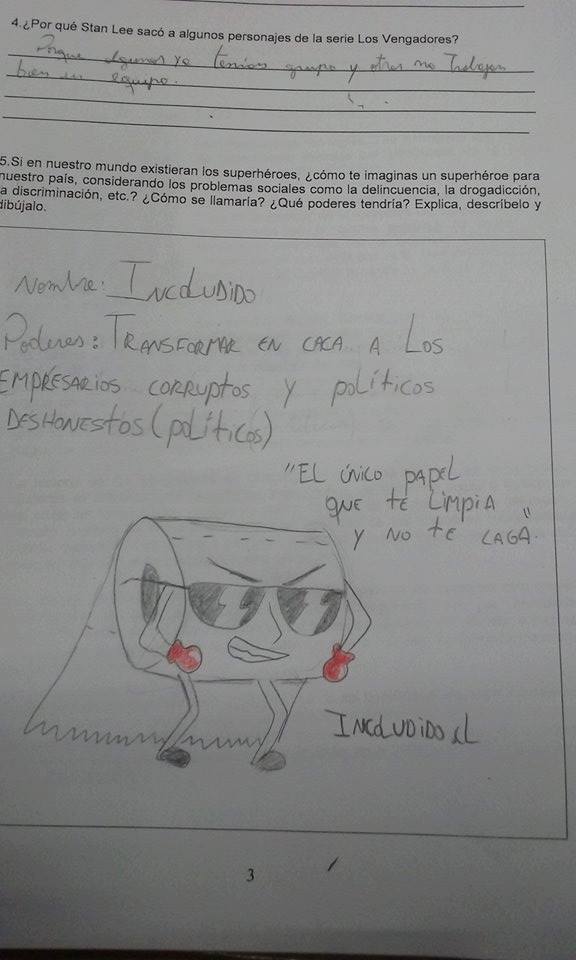 4.¿Por qué Stan Lee sacó a algunos personajes de la serie Los Vengadores?
Porque algunos ya tenían grupo y otros no Trabajan
bien en equipo.
5.Si en nuestro mundo existieran los superhéroes, ¿cómo te imaginas un superhéroe para
nuestro país, considerando los problemas sociales como la delincuencia, la drogadicción,
a discriminación, etc.? ¿Cómo se llamaría? ¿Qué poderes tendría? Explica, descríbelo y
dibújalo.
Nombre: INCOLUDIDO
Poderes: TRANSFORMAR EN CACA A LOS
EMPRESARIOS CORRUPTOS Y políticos
DESHONESTOS (políticos)
"EL ÚNICO PAPEL
QUE te LIMPIA
Y NO tE CAGA."
INCOLUDIDO XL
3